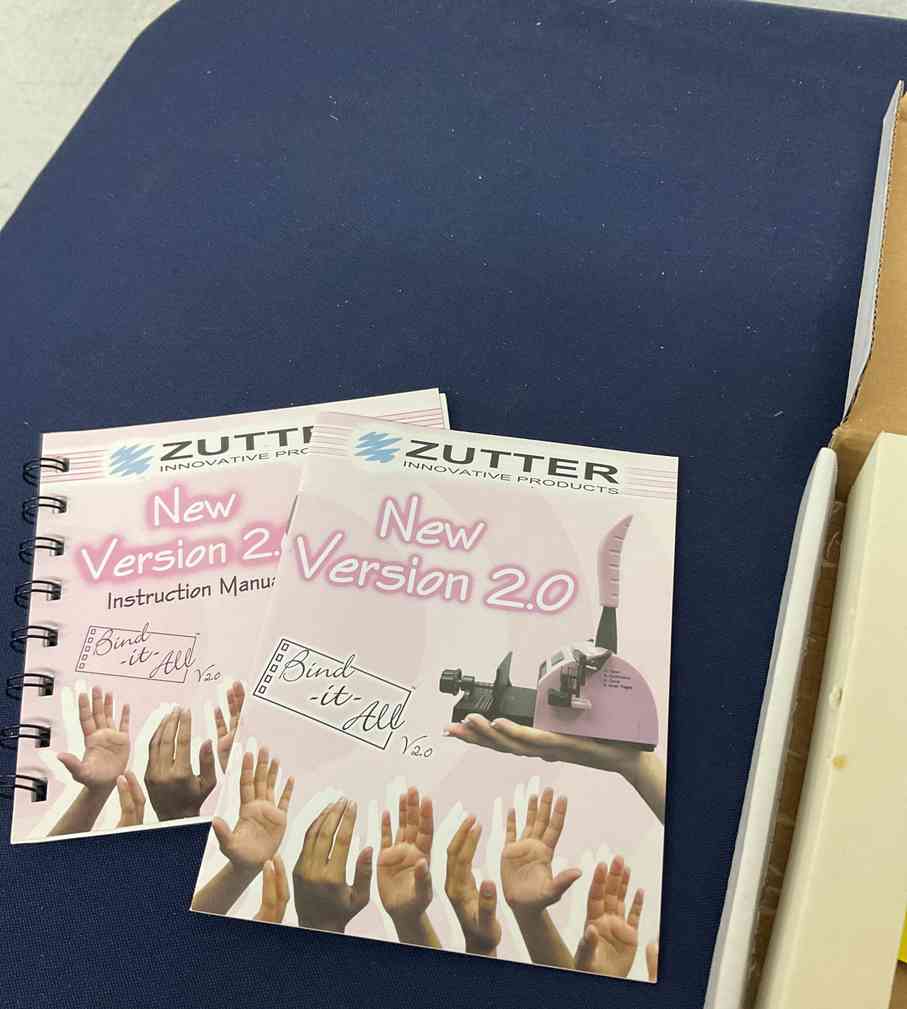 ZUTTER
INNOVATIVE PRODUCTS
New
Version 2.0
Bind
-it-
All
V2.0
ZUTT
INNOVATIVE PRO
New
Version 2.
Instruction Manua
Bind
-it-
All
V2.0